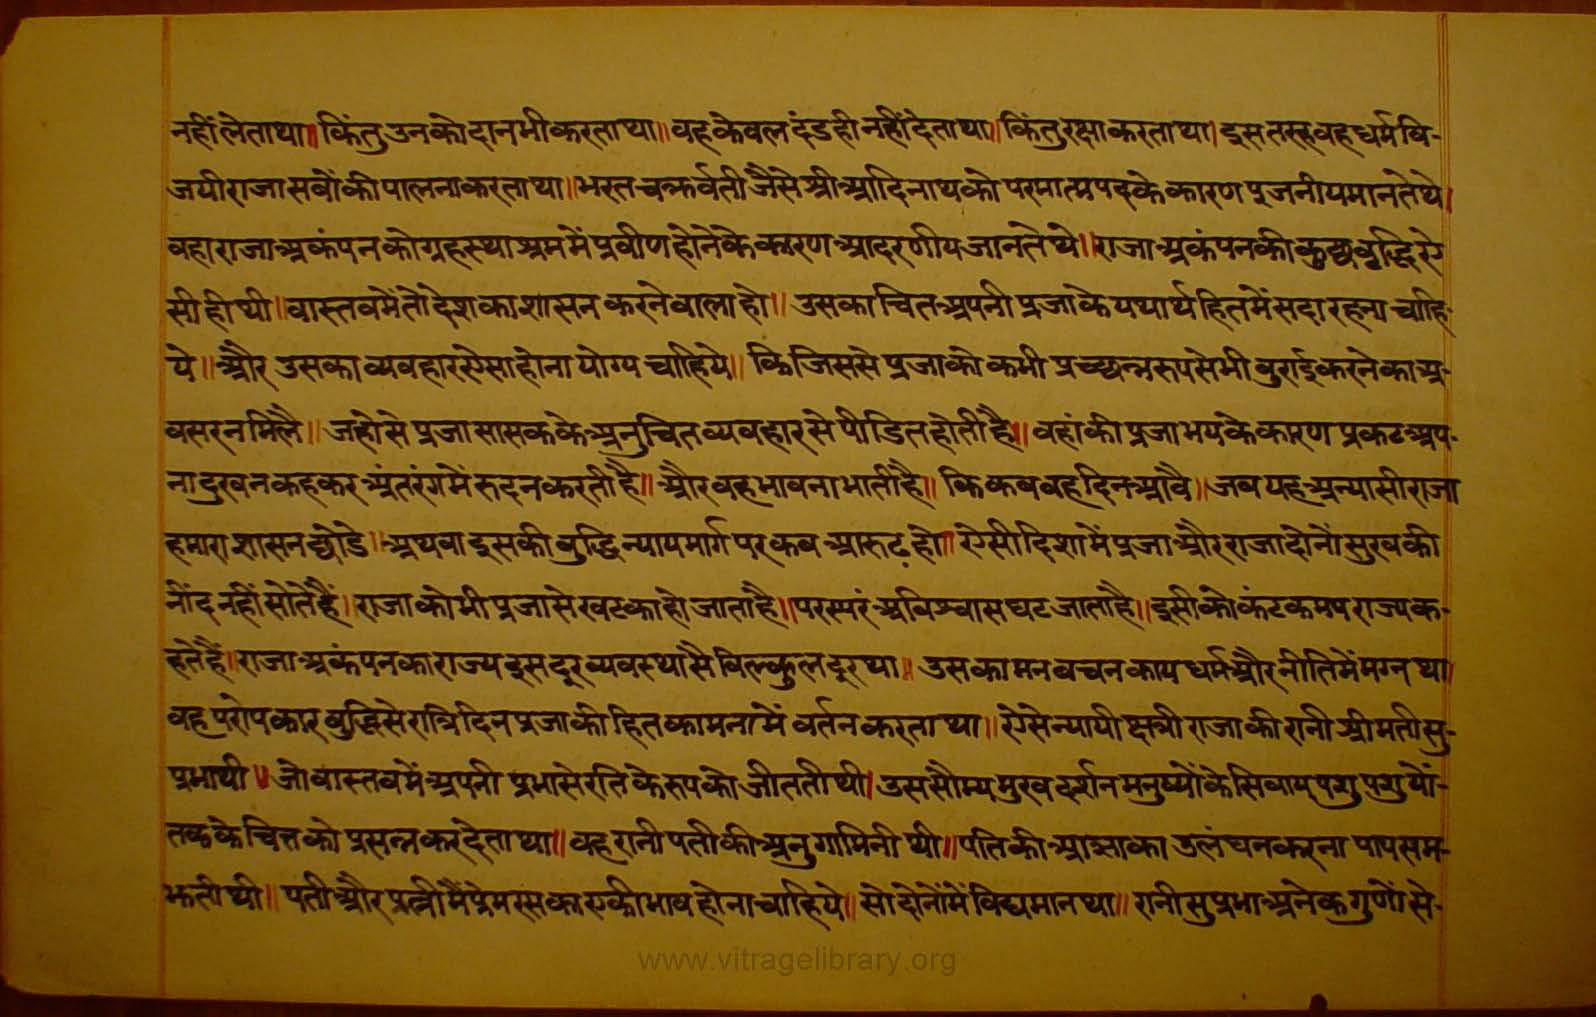 नहीं लेता था॥ किंतु उनको दान भी करता था॥ वह केवल दंड ही नहीं देता था॥ किंतु रक्षा करता था॥ इस तरह वह धर्म वि-
जयी राजा सबों की पालना करता था॥ भरत चक्रर्वती जैसे श्री आदिनाथ को परमात्म पद के कारण पुजनीय मानते थे॥
वहा राजा अकंपन को ग्रहस्थाश्रम में प्रवीण होने के कारण आदरणीय जानते थे॥ राजा अकंपन की कुछ वृद्धि ऐ
सी ही थी॥ वास्तव में तो देश का शासन करने वाला हो॥ उसका चित अपनी प्रजा के यथार्थ हित में सदा रहना चाहि-
ये॥ और उसका व्यवहार ऐसा होना योग्य चाहिये॥ कि जिससे प्रजा को कभी प्रच्छन्न रुप से भी बुराई करने का अ-
वसर न मिलै॥ जहां से प्रजा सासक के अनुचित व्यवहार से पीडित होती है॥ वहां की प्रजा भय के कारण प्रकट अप-
ना दुख न कहकर अंतरंग में रुदन करती है॥ और वह भावना भाती है॥ कि कब वह दिन आवै॥ जब यह अन्यासी राजा
हमारा शासन छोडे॥ अथवा इसकी बुद्धि न्यायमार्ग पर कब आरुढ़ हो॥ ऐसी दिशा में प्रजा और राजा दोनों सुख की
नींद नहीं सोते हैं॥ राजा को भी प्रजा से खटका हो जाता है॥ परस्परं अविश्वास घट जाता है॥ इसी को कंटकमय राज्य क-
हते हैं॥ राजा अकंपन का राज्य इस दूर व्यवस्था सै बिल्कुल दूर था॥ उसका मन बचन काय धर्म और नीति में मग्न था॥
वह परोपकार बुद्धि से रात्रि दिन प्रजा की हित कामना में वर्तन करता था॥ ऐसे न्यायी क्षत्री राजा की रानी श्रीमती सु-
प्रभा थी॥ जो वास्तव में अपनी प्रभा से रति के रुप को जीतती थी॥ उस सौम्य मुख दर्शन मनुष्यों के सिवाय पशु पशुयों-
तक के चित्त को प्रसन्न कर देता था॥ वह रानी पती की अनुगामिनी थी॥ पति की आज्ञा का उलंघन करना पाप सम-
झती थी॥ पती और पत्नी मैं प्रेम रस का एकी भाव होना चाहिये॥ सो दोनों में विद्यमान था॥ रानी सुप्रभा अनेक गुणों से-
www.vitragelibrary.org